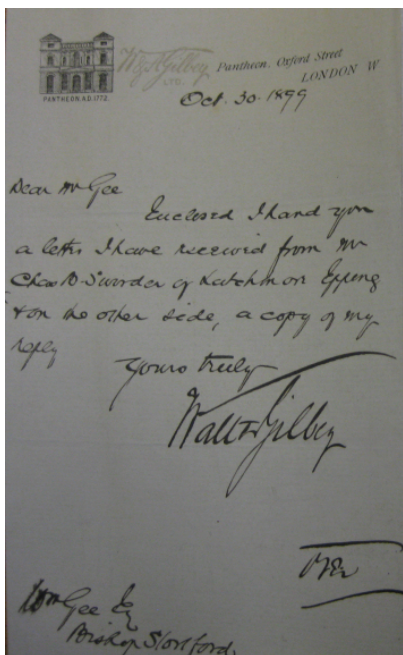 PANTHEON. A.D. 1772.
W & A Gilbey
LTD.
Pantheon, Oxford Street
LONDON W
Oct. 30. 1899
Dear Mr Gee
Enclosed I hand you
a letter I have received from Mr
Chas B Sworder of Epping
& on the other side, a copy of my
reply
Yours truly
Walter Gilbey
Wm Gee Eq
Bishop Stortford.